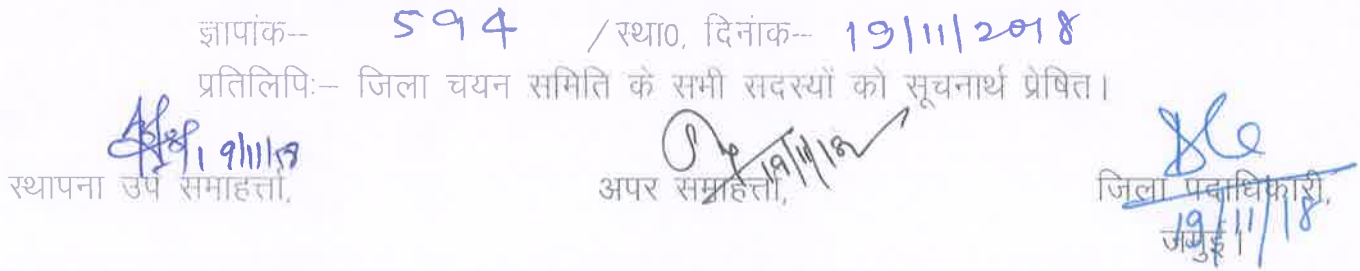 ज्ञापांक-- 594 /स्था0, दिनांक-- 19/11/2018
प्रतिलिपिः– जिला चयन समिति के सभी सदस्यों को सूचनार्थ प्रेषित।
19/11/18 19/11/18
स्थापना उप समाहर्त्ता, अपर समाहर्त्ता, जिला पदाधिकारी,
19/11/18
जमुई।